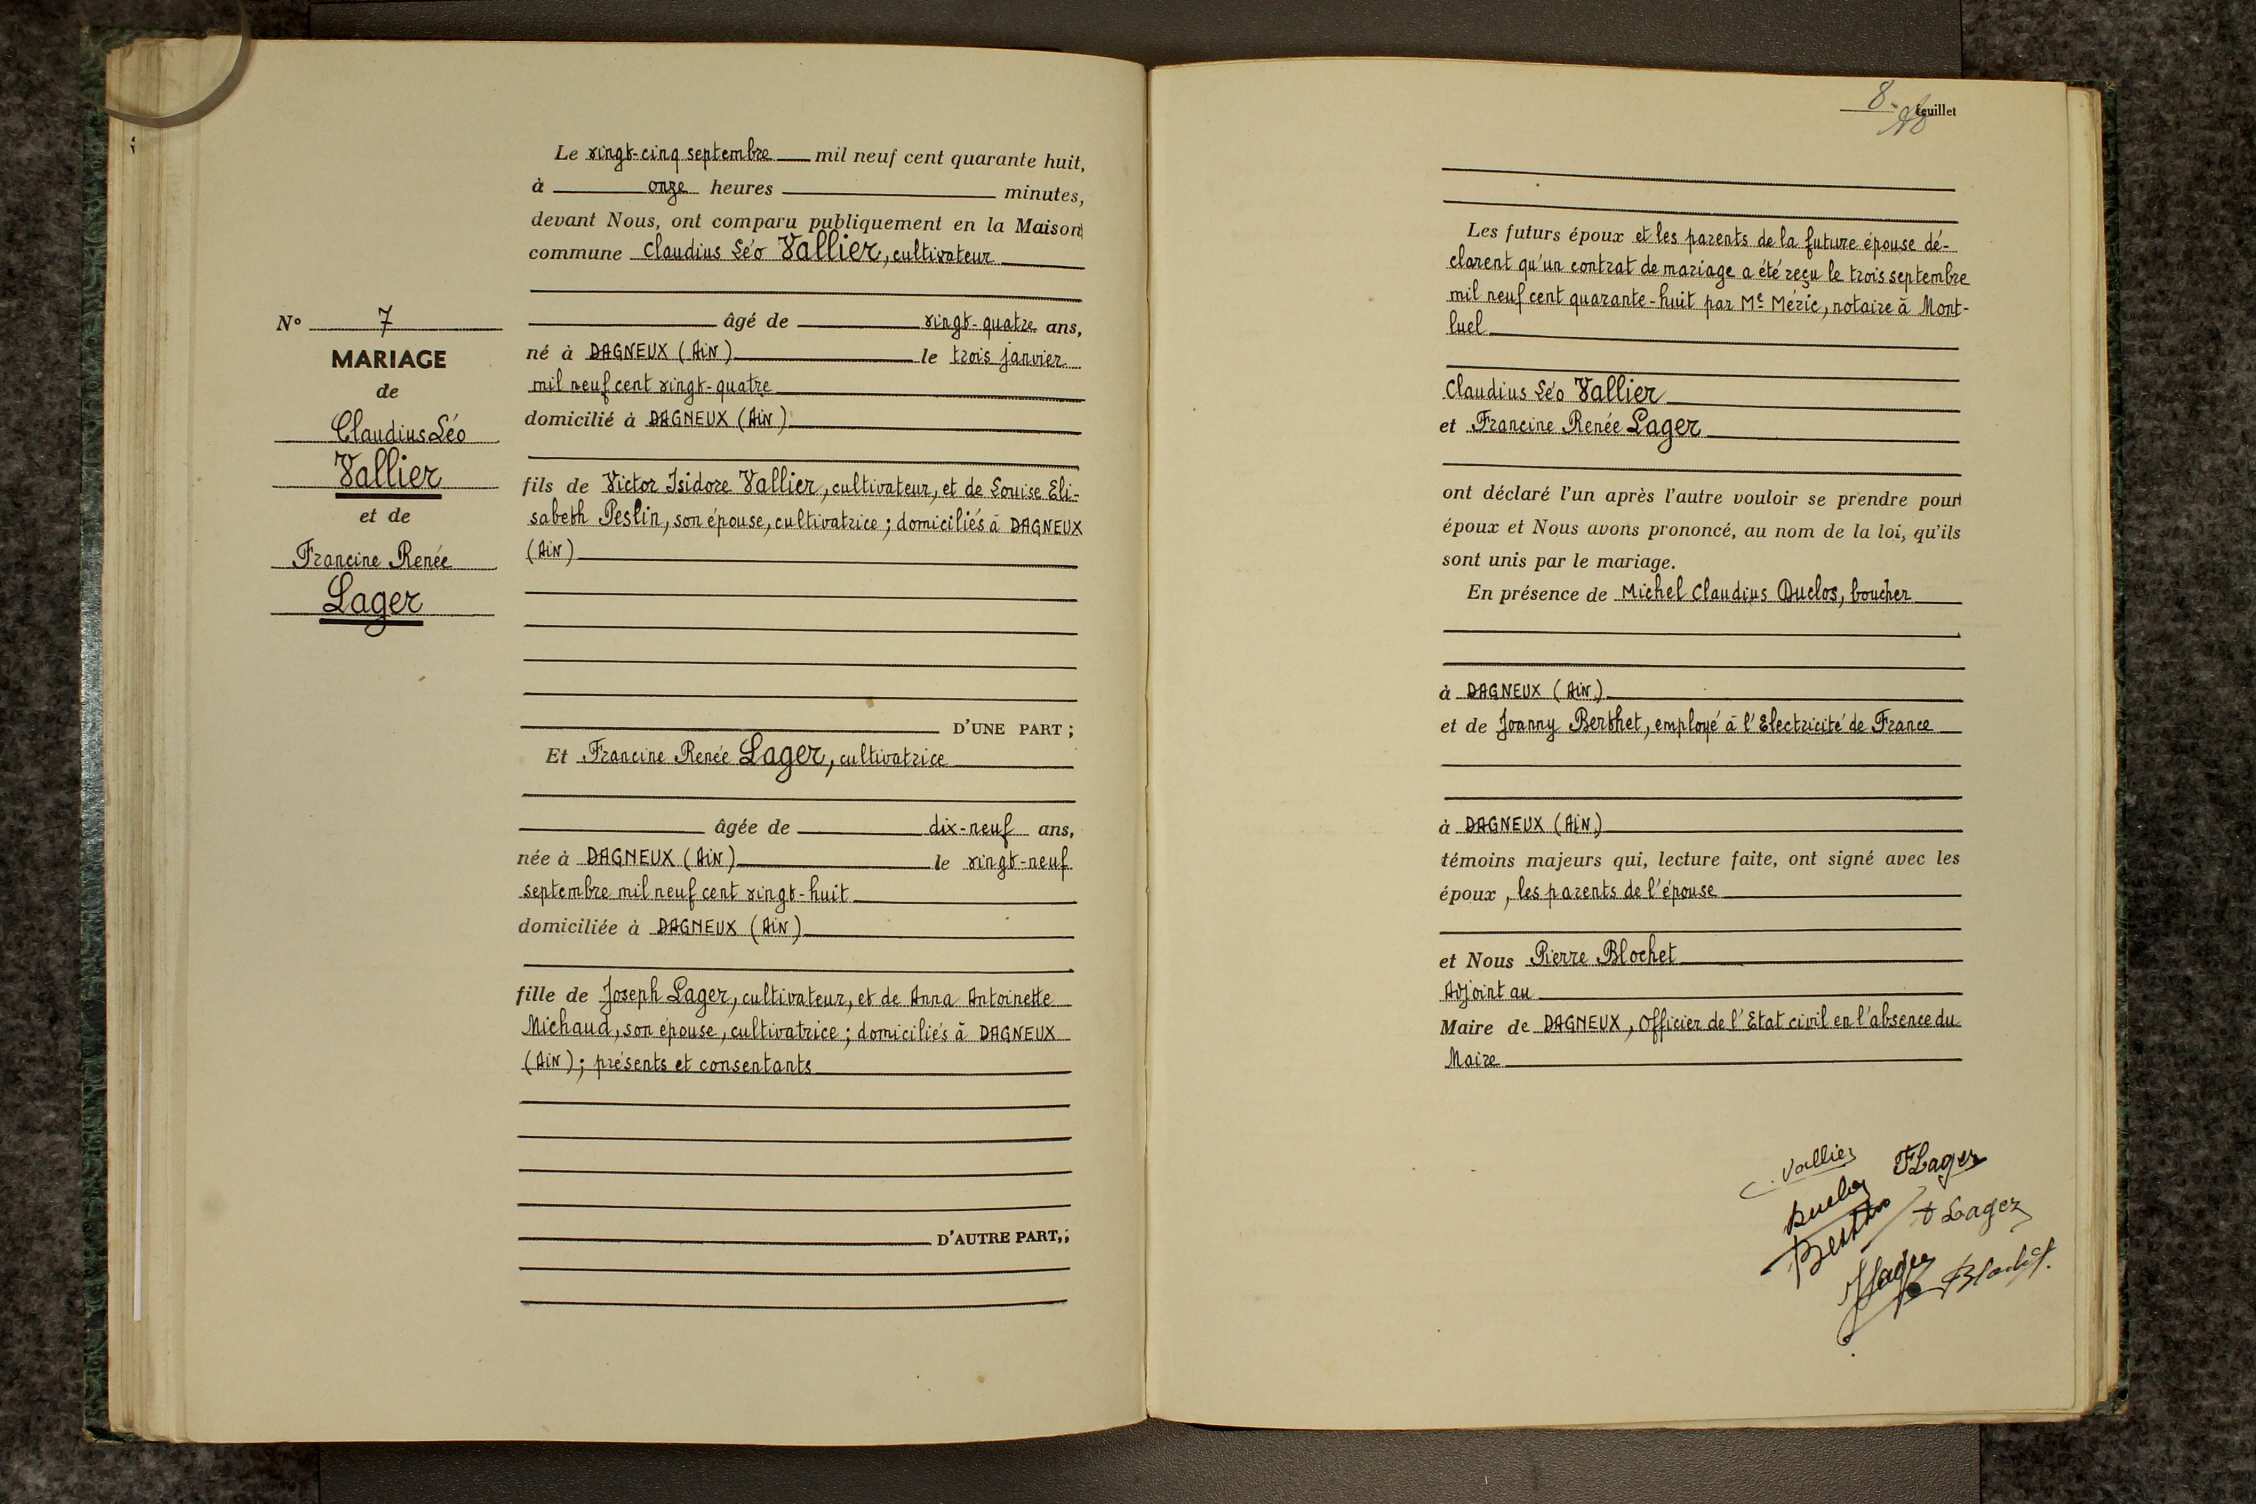 Le vingt-cinq septembre mil neuf cent quarante huit,
à onze heures minutes,
devant Nous, ont comparu publiquement en la Maison
commune Claudius Léo Vallier, cultivateur
N° 7
MARIAGE
de
Claudius Léo
Vallier
et de
Francine Renée
Lager
âgé de vingt-quatre ans,
né à DAGNEUX (AIN) le trois janvier
mil neuf cent vingt-quatre
domicilié à DAGNEUX (AIN)
fils de Victor Isidore Vallier, cultivateur, et de Louise Eli-
sabeth Peslin, son épouse, cultivatrice; domiciliés à DAGNEUX
(AIN)
D'UNE PART;
Et Francine Renée Lager, cultivatrice
âgée de dix-neuf ans,
née à DAGNEUX (AIN) le vingt-neuf
septembre mil neuf cent vingt-huit
domiciliée à DAGNEUX (AIN)
fille de Joseph Lager, cultivateur, et de Anna Antoinette
Michaud, son épouse, cultivatrice; domiciliés à DAGNEUX
(AIN); présents et consentants
D'AUTRE PART,;
8 feuillet
Les futurs époux et les parents de la future épouse dé-
clarent qu'un contrat de mariage a été reçu le trois septembre
mil neuf cent quarante-huit par Me Méric, notaire à Mont-
luel
Claudius Léo Vallier
et Francine Renée Lager
ont déclaré l'un après l'autre vouloir se prendre pour
époux et Nous avons prononcé, au nom de la loi, qu'ils
sont unis par le mariage.
En présence de Michel Claudius Duclos, boucher
à DAGNEUX (AIN)
et de Joanny Berthet, employé à l'Electricité de France
à DAGNEUX (AIN)
témoins majeurs qui, lecture faite, ont signé avec les
époux, les parents de l'épouse
et Nous Pierre Blochet
Adjoint au
Maire de DAGNEUX, Officier de l'Etat civil en l'absence du
Maire
C. Vallier FLager
Duclos
Lager
Berthet
JLager
Blochet